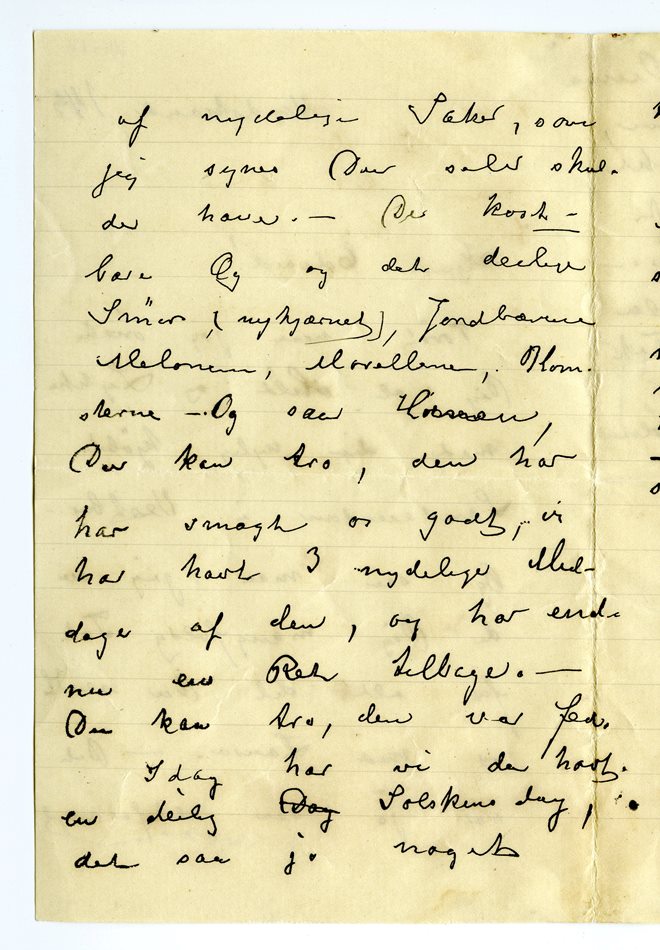 af nydelige Saker, som
jeg synes Du selv skul-
de have. — De kost-
bare Æg og det deilige
Smör, (nykjærnet), Jordbærene
Melonen, Morellerne, Blom-
sterne —. Og saa Hønen,
Du kan tro, den har
har smagt os godt, vi
har havt 3 nydelige Mid-
dage af den, og har end-
nu en Ret tilbage. —
Du kan tro, den var fed.
Idag har vi da havt
en deilig Dag Solskins dag,
det saa jo noget